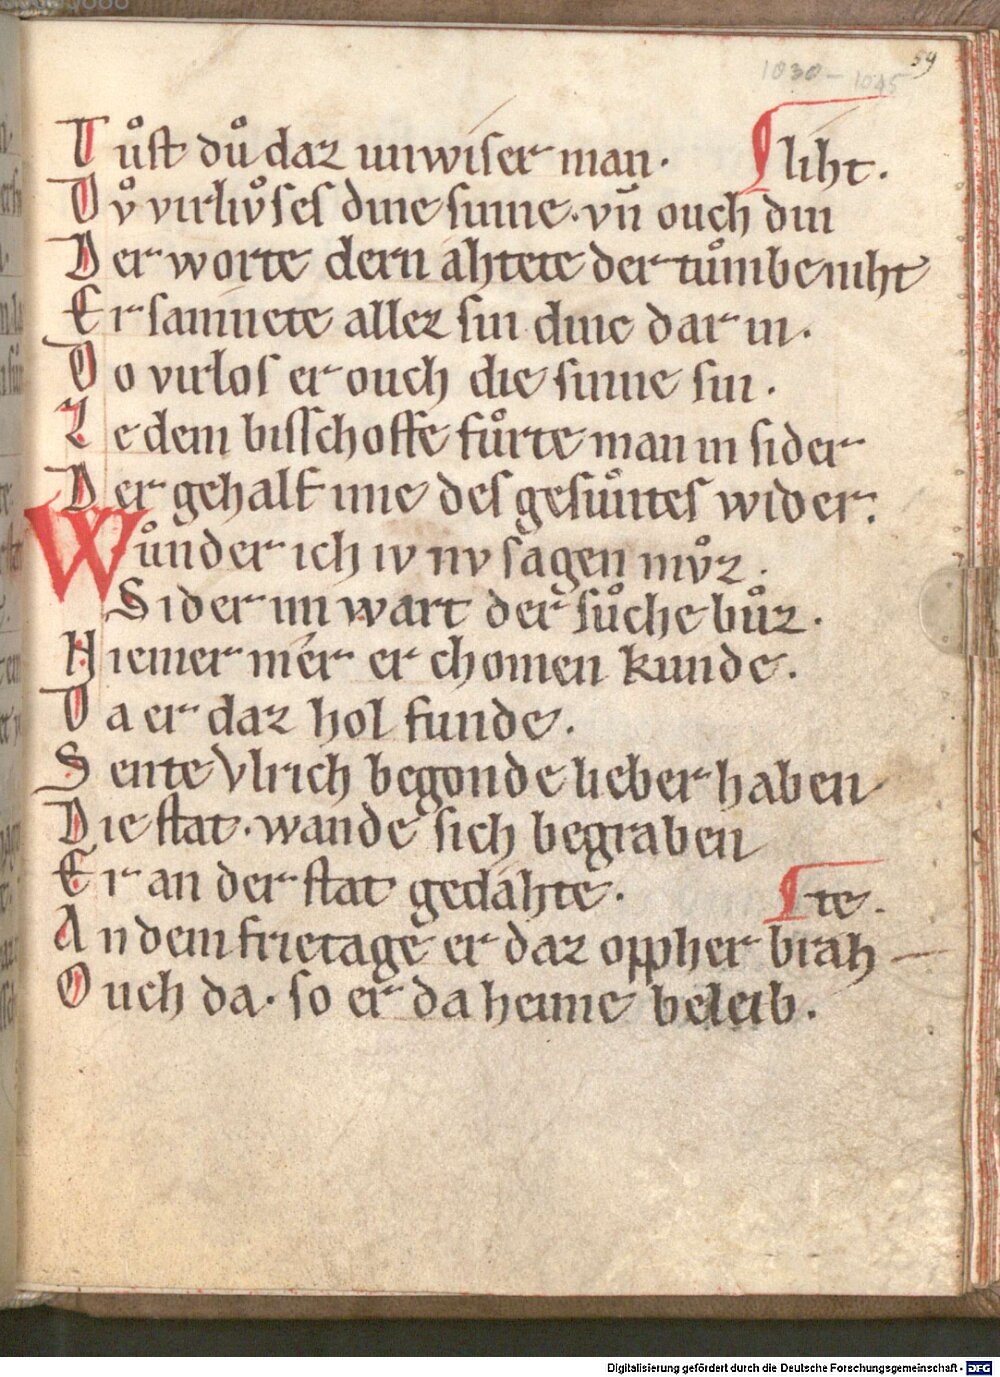 1030-1045
59
Tůſt dů daz unwiſer man. ſliht.
Dv̊ virliv̊ſes dine ſinne. vn̄ ouch din
Der worte dern ahtete der tůmbe niht
Er ſamnete allez ſin dinc dar in.
Do virlos er ouch die ſinne ſin.
Ze dem biſſchoffe fůrte man in ſider
Der gehalf ime des geſůntes wider.
Wůnder ich iv nv ſagen mv̊z.
Sider im wart der ſůche bůz.
Niemer mer er chomen kunde.
Da er daz hol funde.
Sente Vlrich begonde lieber haben
Die ſtat. wande ſich begraben
Er an der ſtat gedâhte. te.
An dem frietage er daz oppher brah
Ouch da. ſo er da heime beleib.
Digitalisierung gefördert durch die Deutsche Forschungsgemeinschaft - DFG